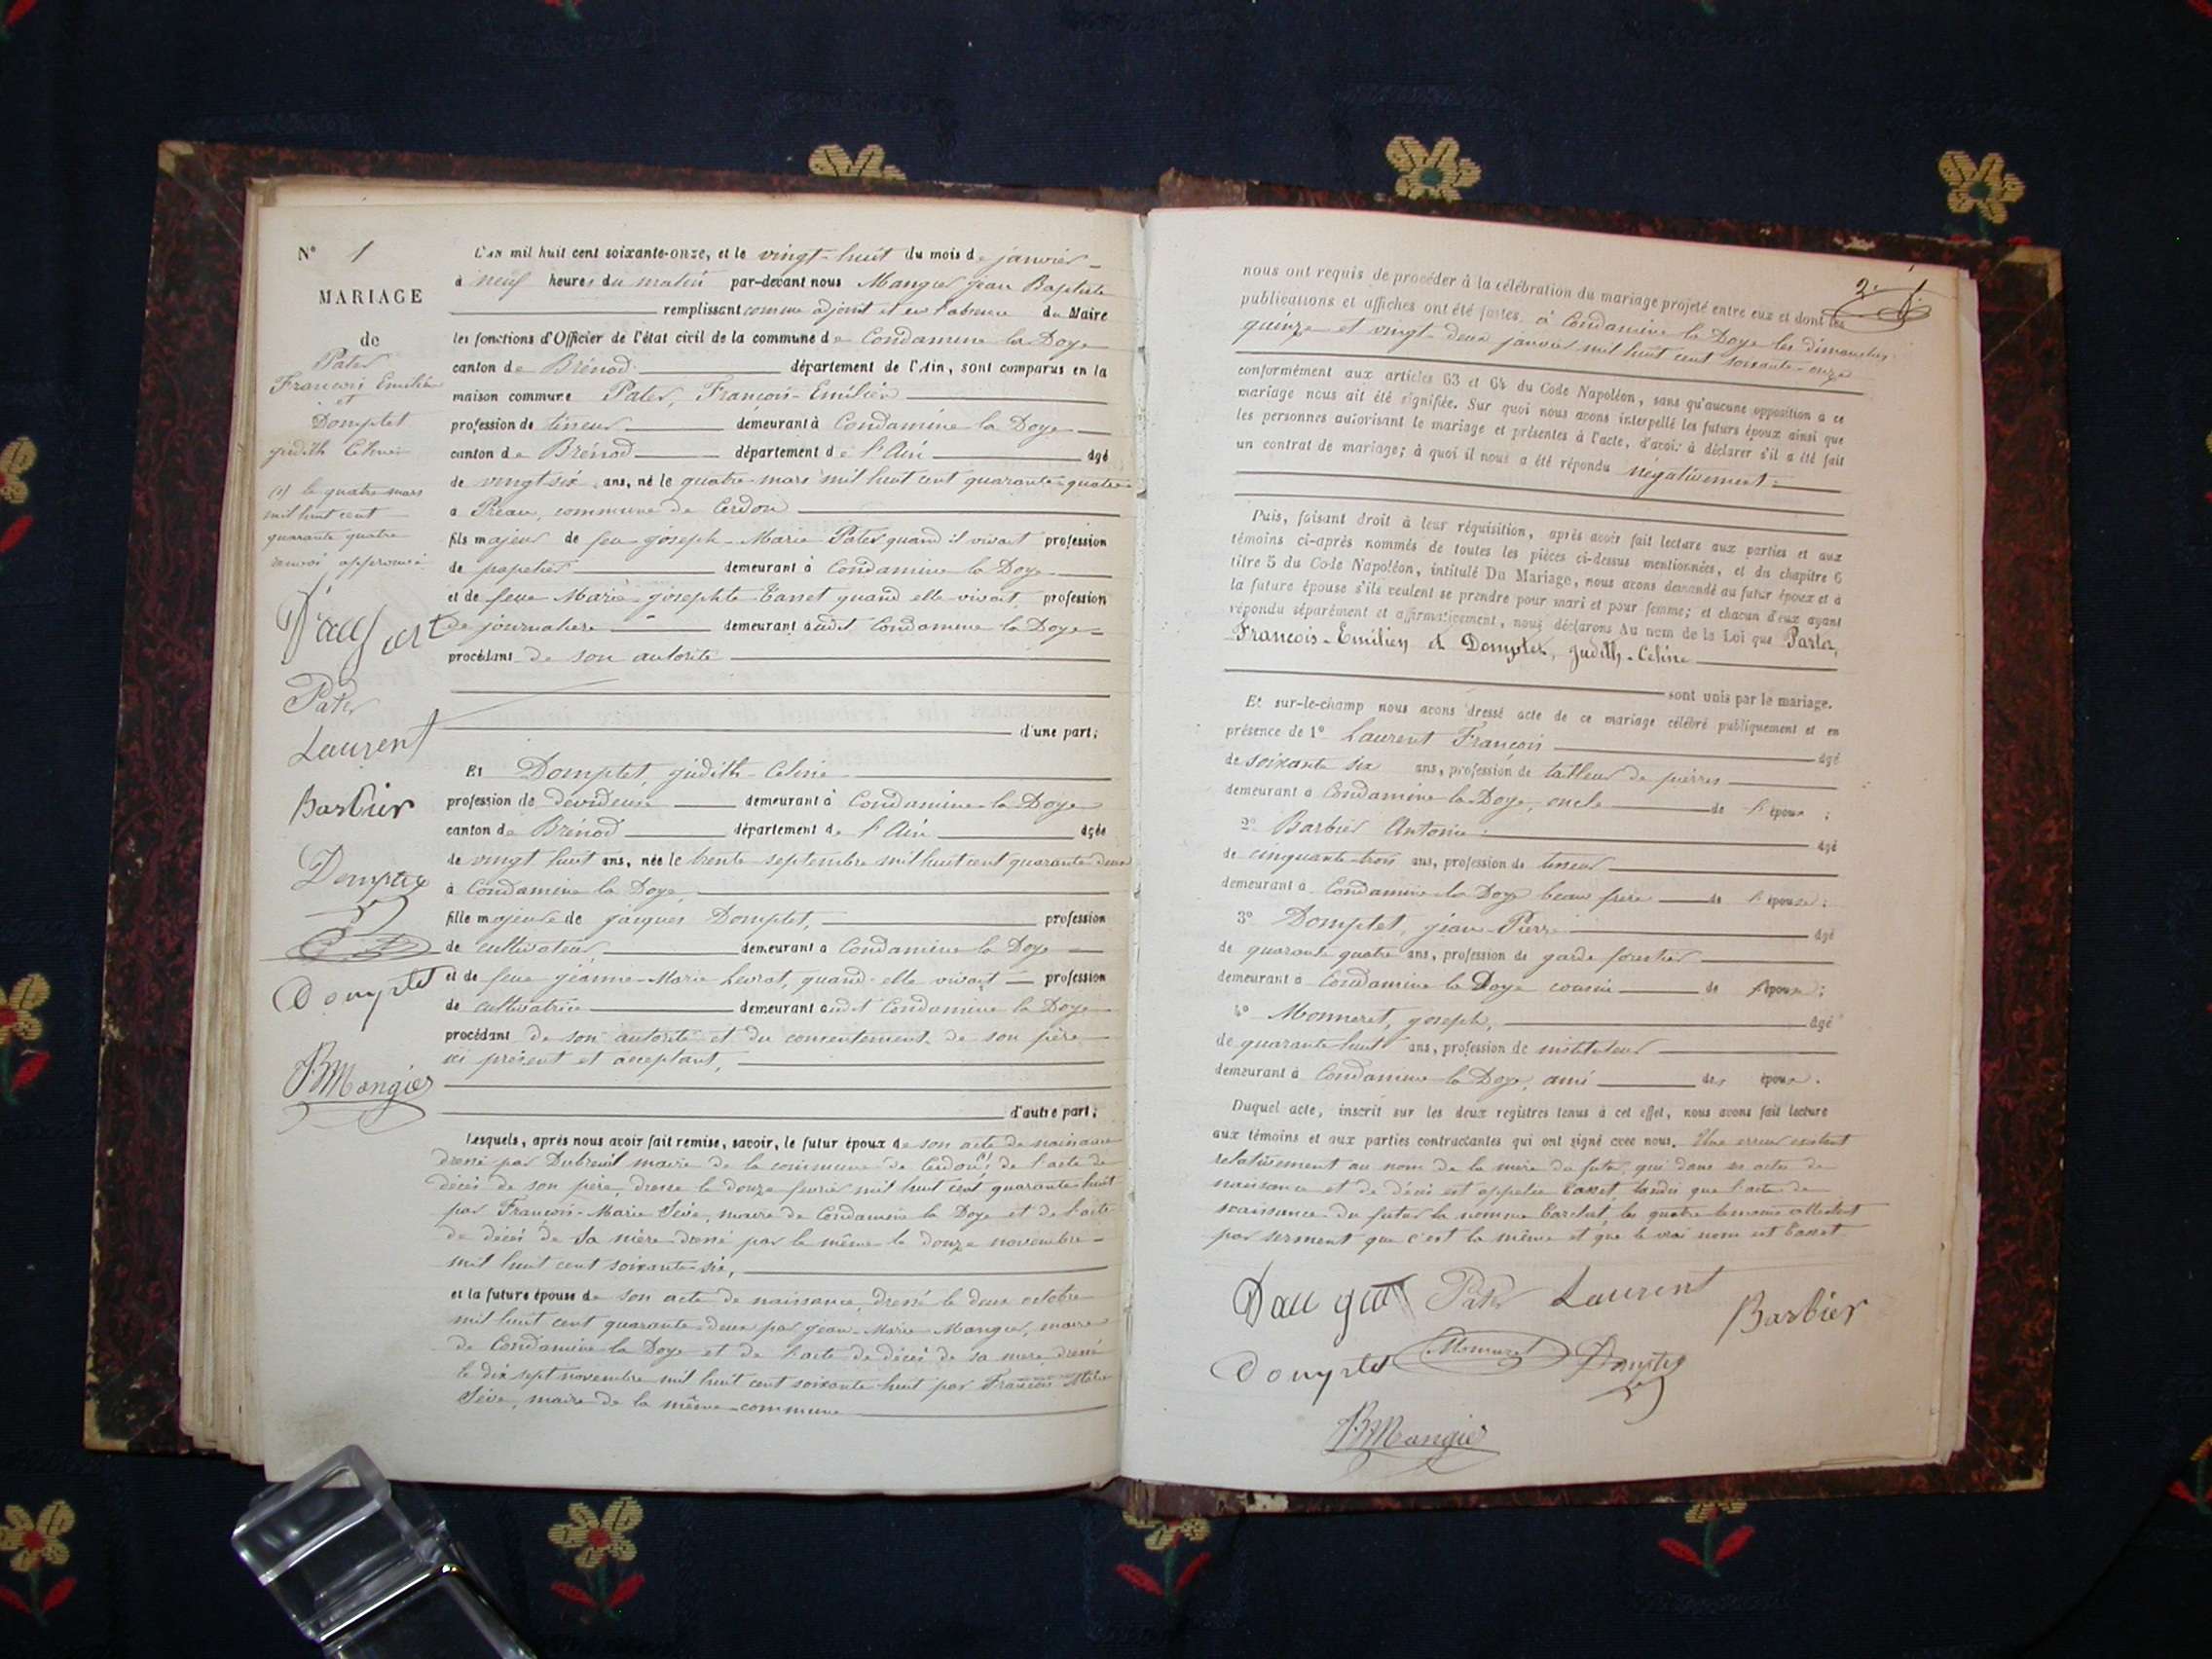 N° 1
MARIAGE
de
Pater
François Emilien
et
Domptet
judith Celinie
(1) le quatre mars
mil huit cent
quarante quatre
renvoi approuvé
Pater
Laurent
Barbier
Domptet
Domptet
JBMangier
L'AN mil huit cent soixante-onze, et le vingt-huit du mois de janvier
à neuf heures du matin par-devant nous Mangier jean Baptiste
remplissant comme adjoint et en l'absence du Maire
les fonctions d'Officier de l'état civil de la commune de Condamine la Doye
canton de Brénod département de l'Ain, sont comparus en la
maison commune Pater, François-Emilien
profession de tisseur demeurant à Condamine la Doye
canton de Brénod département de l'Ain âgé
de vingt six ans, né le quatre mars mil huit cent quarante-quatre
à Préau, commune de Cerdon
fils majeur de feu joseph-Marie Pater quand il vivait profession
de papetier demeurant à Condamine la Doye
et de feue Marie-josephte Tasset quand elle vivait profession
de journalière demeurant audit Condamine la Doye
procédant de son autorité
d'une part;
Et Domptet, judith-Celinie
profession de dévideuse demeurant à Condamine la Doye
canton de Brénod département de l'Ain âgée
de vingt huit ans, née le trente septembre mil huit cent quarante deux
à Condamine la Doye,
fille majeure de jacques Domptet, profession
de cultivateur, demeurant à Condamine la Doye
et de feue jeanne-Marie Levrat, quand elle vivait profession
de cultivatrice demeurant audit Condamine la Doye
procédant de son autorité et du consentement de son père
ici présent et acceptant,
d'autre part;
Lesquels, après nous avoir fait remise, savoir, le futur époux de son acte de naissance
dressé par Dubreuil maire de la commune de Cerdon (1) de l'acte de
décès de son père, dressé le douze février mil huit cent quarante huit
par François-Marie Sève, maire de Condamine la Doye et de l'acte
de décès de sa mère dressé par le même le douze novembre
mil huit cent soixante six,
et la future épouse de son acte de naissance, dressé le deux octobre
mil huit cent quarante-deux par jean-Marie Mangier, maire
de Condamine la Doye et de l'acte de décès de sa mère dressé
le dix sept novembre mil huit cent soixante huit par François Marie
Sève, maire de la même commune
2
nous ont requis de procéder à la célébration du mariage projeté entre eux et dont les
publications et affiches ont été faites, à Condamine la Doye les dimanches
quinze et vingt-deux janvier mil huit cent soixante-onze
conformément aux articles 63 et 64 du Code Napoléon, sans qu'aucune opposition a ce
mariage nous ait été signifiée. Sur quoi nous avons interpellé les futurs époux ainsi que
les personnes autorisant le mariage et présentes à l'acte, d'avoir à déclarer s'il a été fait
un contrat de mariage; à quoi il nous a été répondu négativement
Puis, faisant droit à leur réquisition, après avoir fait lecture aux parties et aux
témoins ci-après nommés de toutes les pièces ci-dessus mentionnées, et du chapitre 6
titre 5 du Code Napoléon, intitulé Du Mariage, nous avons demandé au futur époux et à
la future épouse s'ils veulent se prendre pour mari et pour femme; et chacun d'eux ayant
répondu séparément et affirmativement, nous déclarons Au nom de la Loi que Pater,
François-Emilien et Domptet, judith-Celinie
sont unis par le mariage.
Et sur-le-champ nous avons dressé acte de ce mariage célébré publiquement et en
présence de 1° Laurent François âgé
de soixante six ans, profession de tailleur de pierres
demeurant à Condamine la Doye, oncle de l'épouse;
2° Barbier Antoine âgé
de cinquante-trois ans, profession de tisseur
demeurant à Condamine la Doye beau frère de l'épouse;
3° Domptet, jean-Pierre âgé
de quarante quatre ans, profession de garde forestier
demeurant à Condamine la Doye cousin de l'épouse;
4° Monneret, joseph, âgé
de quarante huit ans, profession de instituteur
demeurant à Condamine la Doye, ami des époux.
Duquel acte, inscrit sur les deux registres tenus à cet effet, nous avons fait lecture
aux témoins et aux parties contractantes qui ont signé avec nous. Une erreur existant
relativement au nom de la mère du futur, qui dans ses actes de
naissance et de décès est appelée Tasset, tandis que l'acte de
naissance du futur la nomme les quatre témoins attestent
par serment que c'est la même et que le vrai nom est Tasset
Pater Laurent
Barbier
Domptet Monneret Domptet
JBMangier